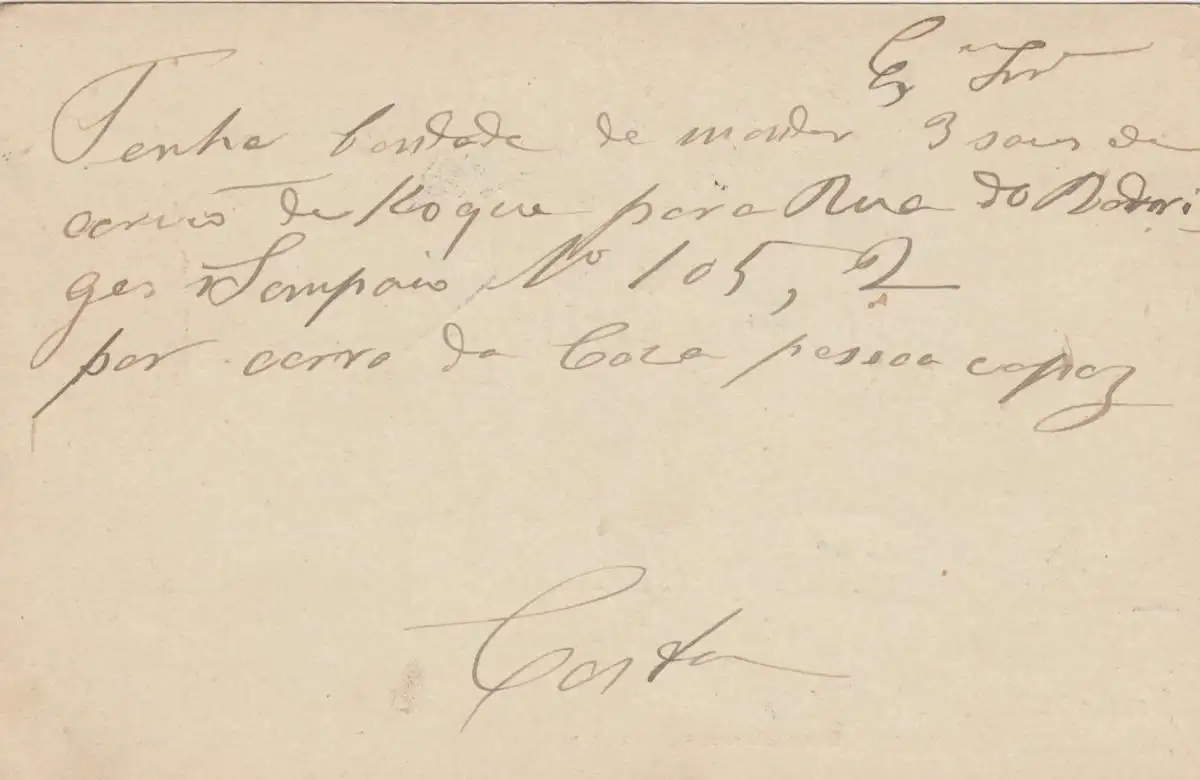 Ex.mo Snr
Tenha bondade de mandar 3 sacas de
carvão de Koque para Rua do Rodri-
ges Sampaio No 105, 2
por carro da Caza pessoa capaz
Costa